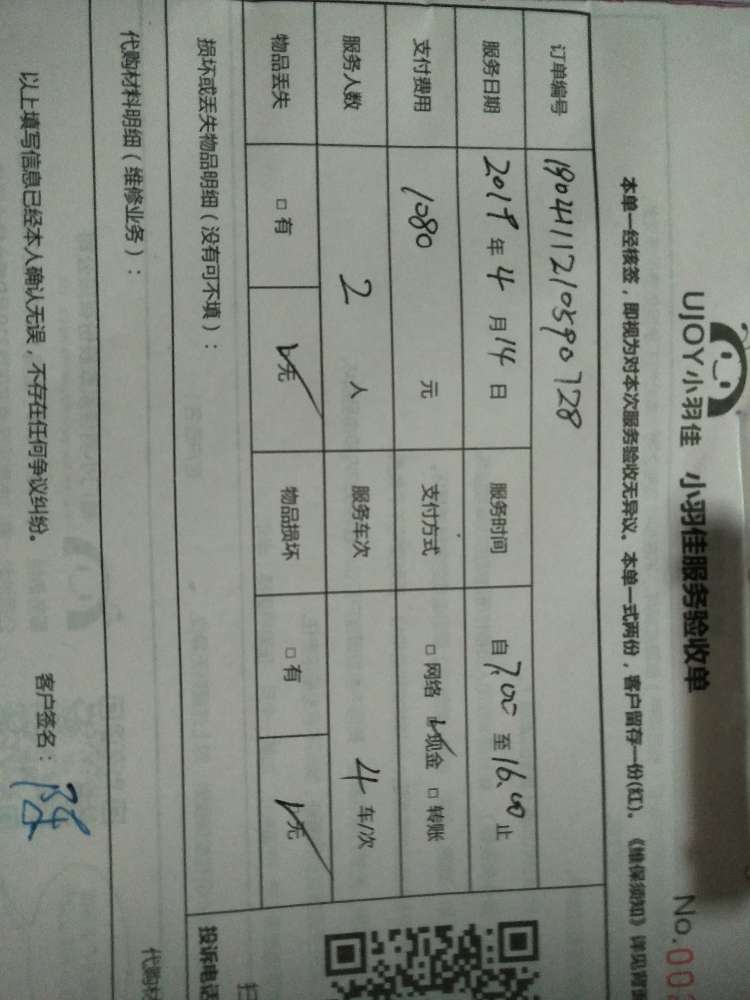 UJOY小羽佳 小羽佳服务验收单 No.00
本单一经核签，即视为对本次服务验收无异议。本单一式两份，客户留存一份(红)。《维保须知》详见背
订单编号 1904111210590728
服务日期 2019年4月14日 服务时间 自7.00至16.00止
支付费用 1080元 支付方式 □网络 ☑现金 □转账
服务人数 2人 服务车次 4车/次
物品丢失 □有 ☑无 物品损坏 □有 ☑无
损坏或丢失物品明细（没有可不填）：
投诉电话
代购材料明细（维修业务）：
代购材
以上填写信息已经本人确认无误，不存在任何争议纠纷。 客户签名：